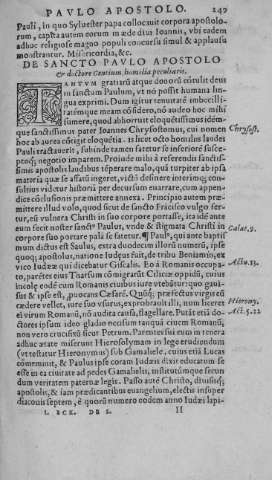 PAVLO APOSTOLO. 249
Pauli, in quo Sylvester papa collocauit corpora apostolo-
rum, capsta autem eorum in æde diui Ioannis, vbi eadem
adhuc religiose magno populi concursu simul & applausu
monstrantur. Misericordia, &c.
DE SANCTO PAVLO APOSTOLO
& doctore Gentium homilia peculiaris.
TANTVM gratiarū atque donorū cōtulit deus
in sanctum Paulum, vt nō possit humana lin-
gua exprimi. Dum igitur tenuitatē imbecilli-
tatémque meam cōsidero, nō audeo hoc mihi
sumere, quod abhorruit eloquētissimus idém-
que sanctissimus pater Ioannes Chrysostomus, cui nomen
Chrysost.
hoc ab aurea cōtigit eloquētia: is licet octo homilias laudes
Pauli tractauerit, subinde tamen fatetur se inferiorē susce-
ptoq; negotio imparem. Proinde mihi à referendi sanctis-
simis apostoli laudibus tēperare malo, quā turpiter ab ipsa
materia quæ se affatim ingeret, vicisti desinere interim q; con-
sultius videtur historiā per decursum enarrare, cum appen-
dice cōclusionis præmittere annexa. Principio autem præ-
mittere illud volo, quod sicut de sancto Frācisco vulgo fer-
tur, eū vulnera Christi in suo corpore portasse, ita idē ante
eum fecit noster sanctꝰ Paulus, vnde & stigmata Christi in
Galat. 6.
corpore suo portare palā se fatetur. ¶ Paulꝰ, qui ante baptis
mum dictus est Saulus, extra duodecim illorū numerū, ipse
quoq; apostolus, natione Iudæus fuit, de tribu Beniamin, ex
vico Iudææ qui dicebatur Giscalis. Eo à Romanis occupa-
Acto. 23.
to, parētes eius Tharsum cōmigrāt Ciliciæ oppidū, cuius
incolę eodē cum Romanis ciuibus iure vtebātur: quo gaui-
sus & ipse est, ꝓuocans Cæsarē. Quūq; præfectus virgis eū
cædere vellet, iure suo vsurus, exprobrabit illi, num liceret
Hierony.
ei virum Romanū, nō audita causa, flagellare. Putāt etiā do-
Act. 5. 22
ctores ipsum ideo gladio necatum tanquā ciuem Romanū,
non vero crucifixū sicut Petrum. Parentes sui eum in tenera
adhuc ætate miserunt Hierosolymam in lege erudiendum
(vt testatur Hieronymus) sub Gamaliele, cuius etiā Lucas
cōmeminit, & Paulus ipse coram Iudæis dixit educatum se
esse in ea ciuitate ad pedes Gamalielis, institutúmque secun
dum veritatem paternæ legis. Passo autē Christo, diuisisq;
apostolis, & iam prædicantibus euangelium, electis insuper
diaconis septem, è quorū numero eodem anno Iudæi lapi-
I. ECK. DE S. II